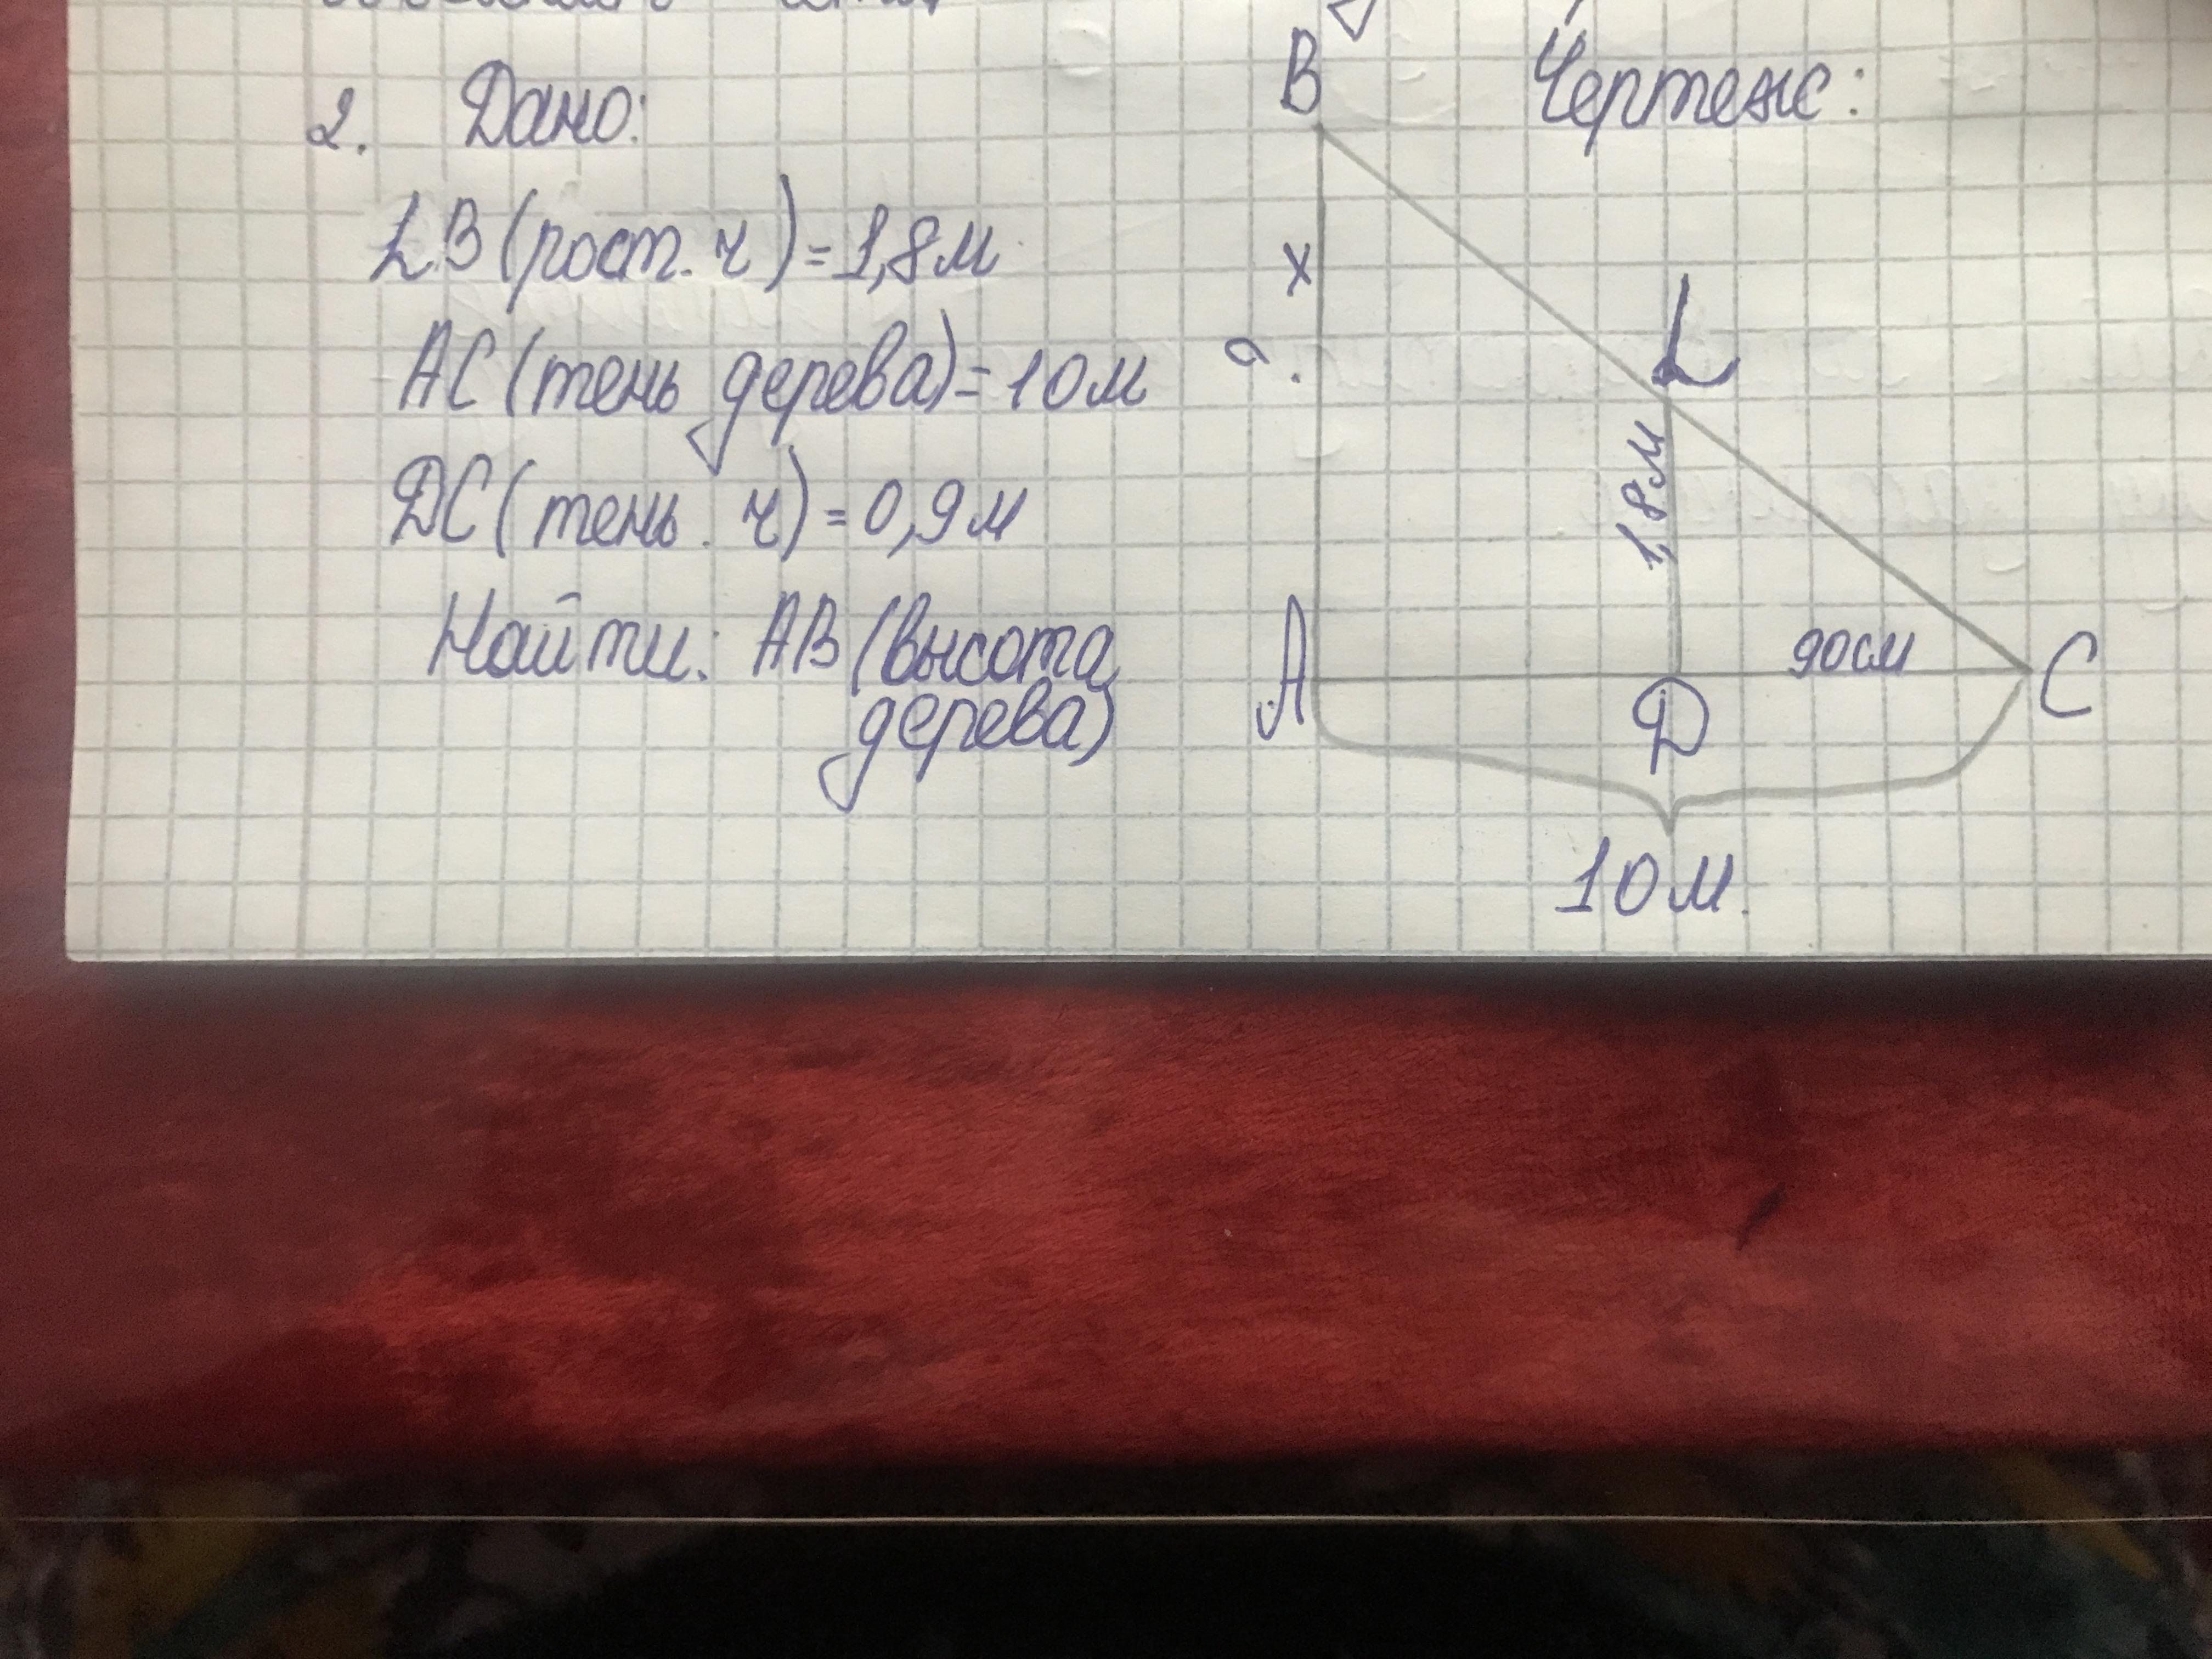 2. Дано:
LB (рост. ч) = 1,8 м
АС (тень дерева) = 10 м
ДС (тень. ч) = 0,9 м
Найти: АВ (высота
дерева)
Чертеж:
В
х
?
L
1,8 м
А
Д
90 см
С
10 м.